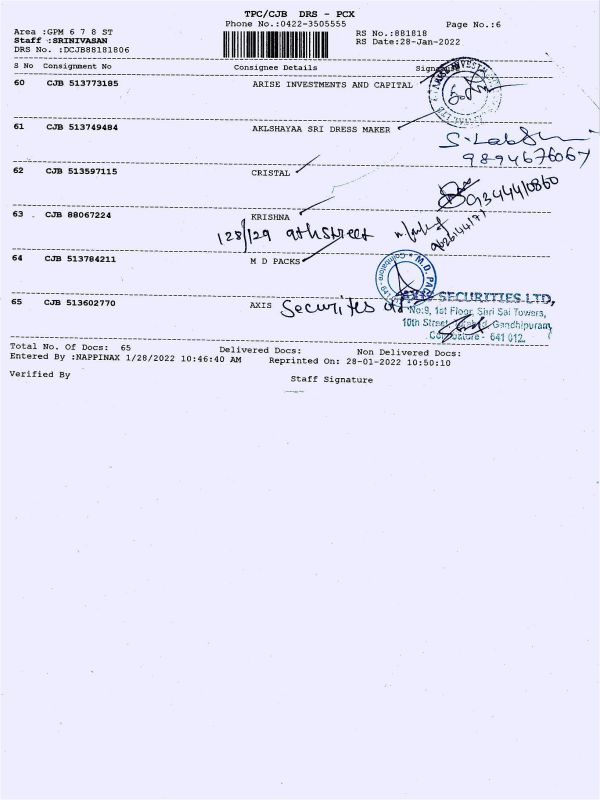 TPC/CJB DRS - PCX
Phone No.:0422-3505555 Page No.:6
Area :GPM 6 7 8 ST RS No.:881818
Staff :SRINIVASAN RS Date:28-Jan-2022
DRS No. :DCJB88181806
S No Consignment No Consignee Details
60 CJB 513773185 ARISE INVESTMENTS AND CAPITAL
61 CJB 513749484 AKLSHAYAA SRI DRESS MAKER
9894676067
62 CJB 513597115 CRISTAL
9344410860
63 CJB 88067224 KRISHNA
128/129 9th street
64 CJB 513784211 M D PACKS
M.D. PACKS
Coimbatore
65 CJB 513602770 AXIS Securites
AXIS SECURITIES LTD,
No:9, 1st Floor, Shri Sai Towers,
10th Street, Gandhipuram,
Coimbatore - 641 012.
Total No. Of Docs: 65 Delivered Docs: Non Delivered Docs:
Entered By :NAPPINAX 1/28/2022 10:46:40 AM Reprinted On: 28-01-2022 10:50:10
Verified By Staff Signature